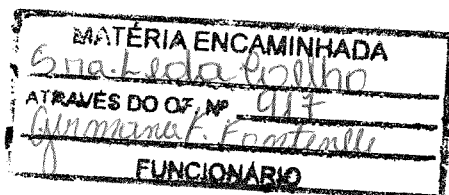 MATÉRIA ENCAMINHADA
Sra Leda Coelho
ATRAVÉS DO OF. Nº 917
Germana F. Fontenelle
FUNCIONÁRIO